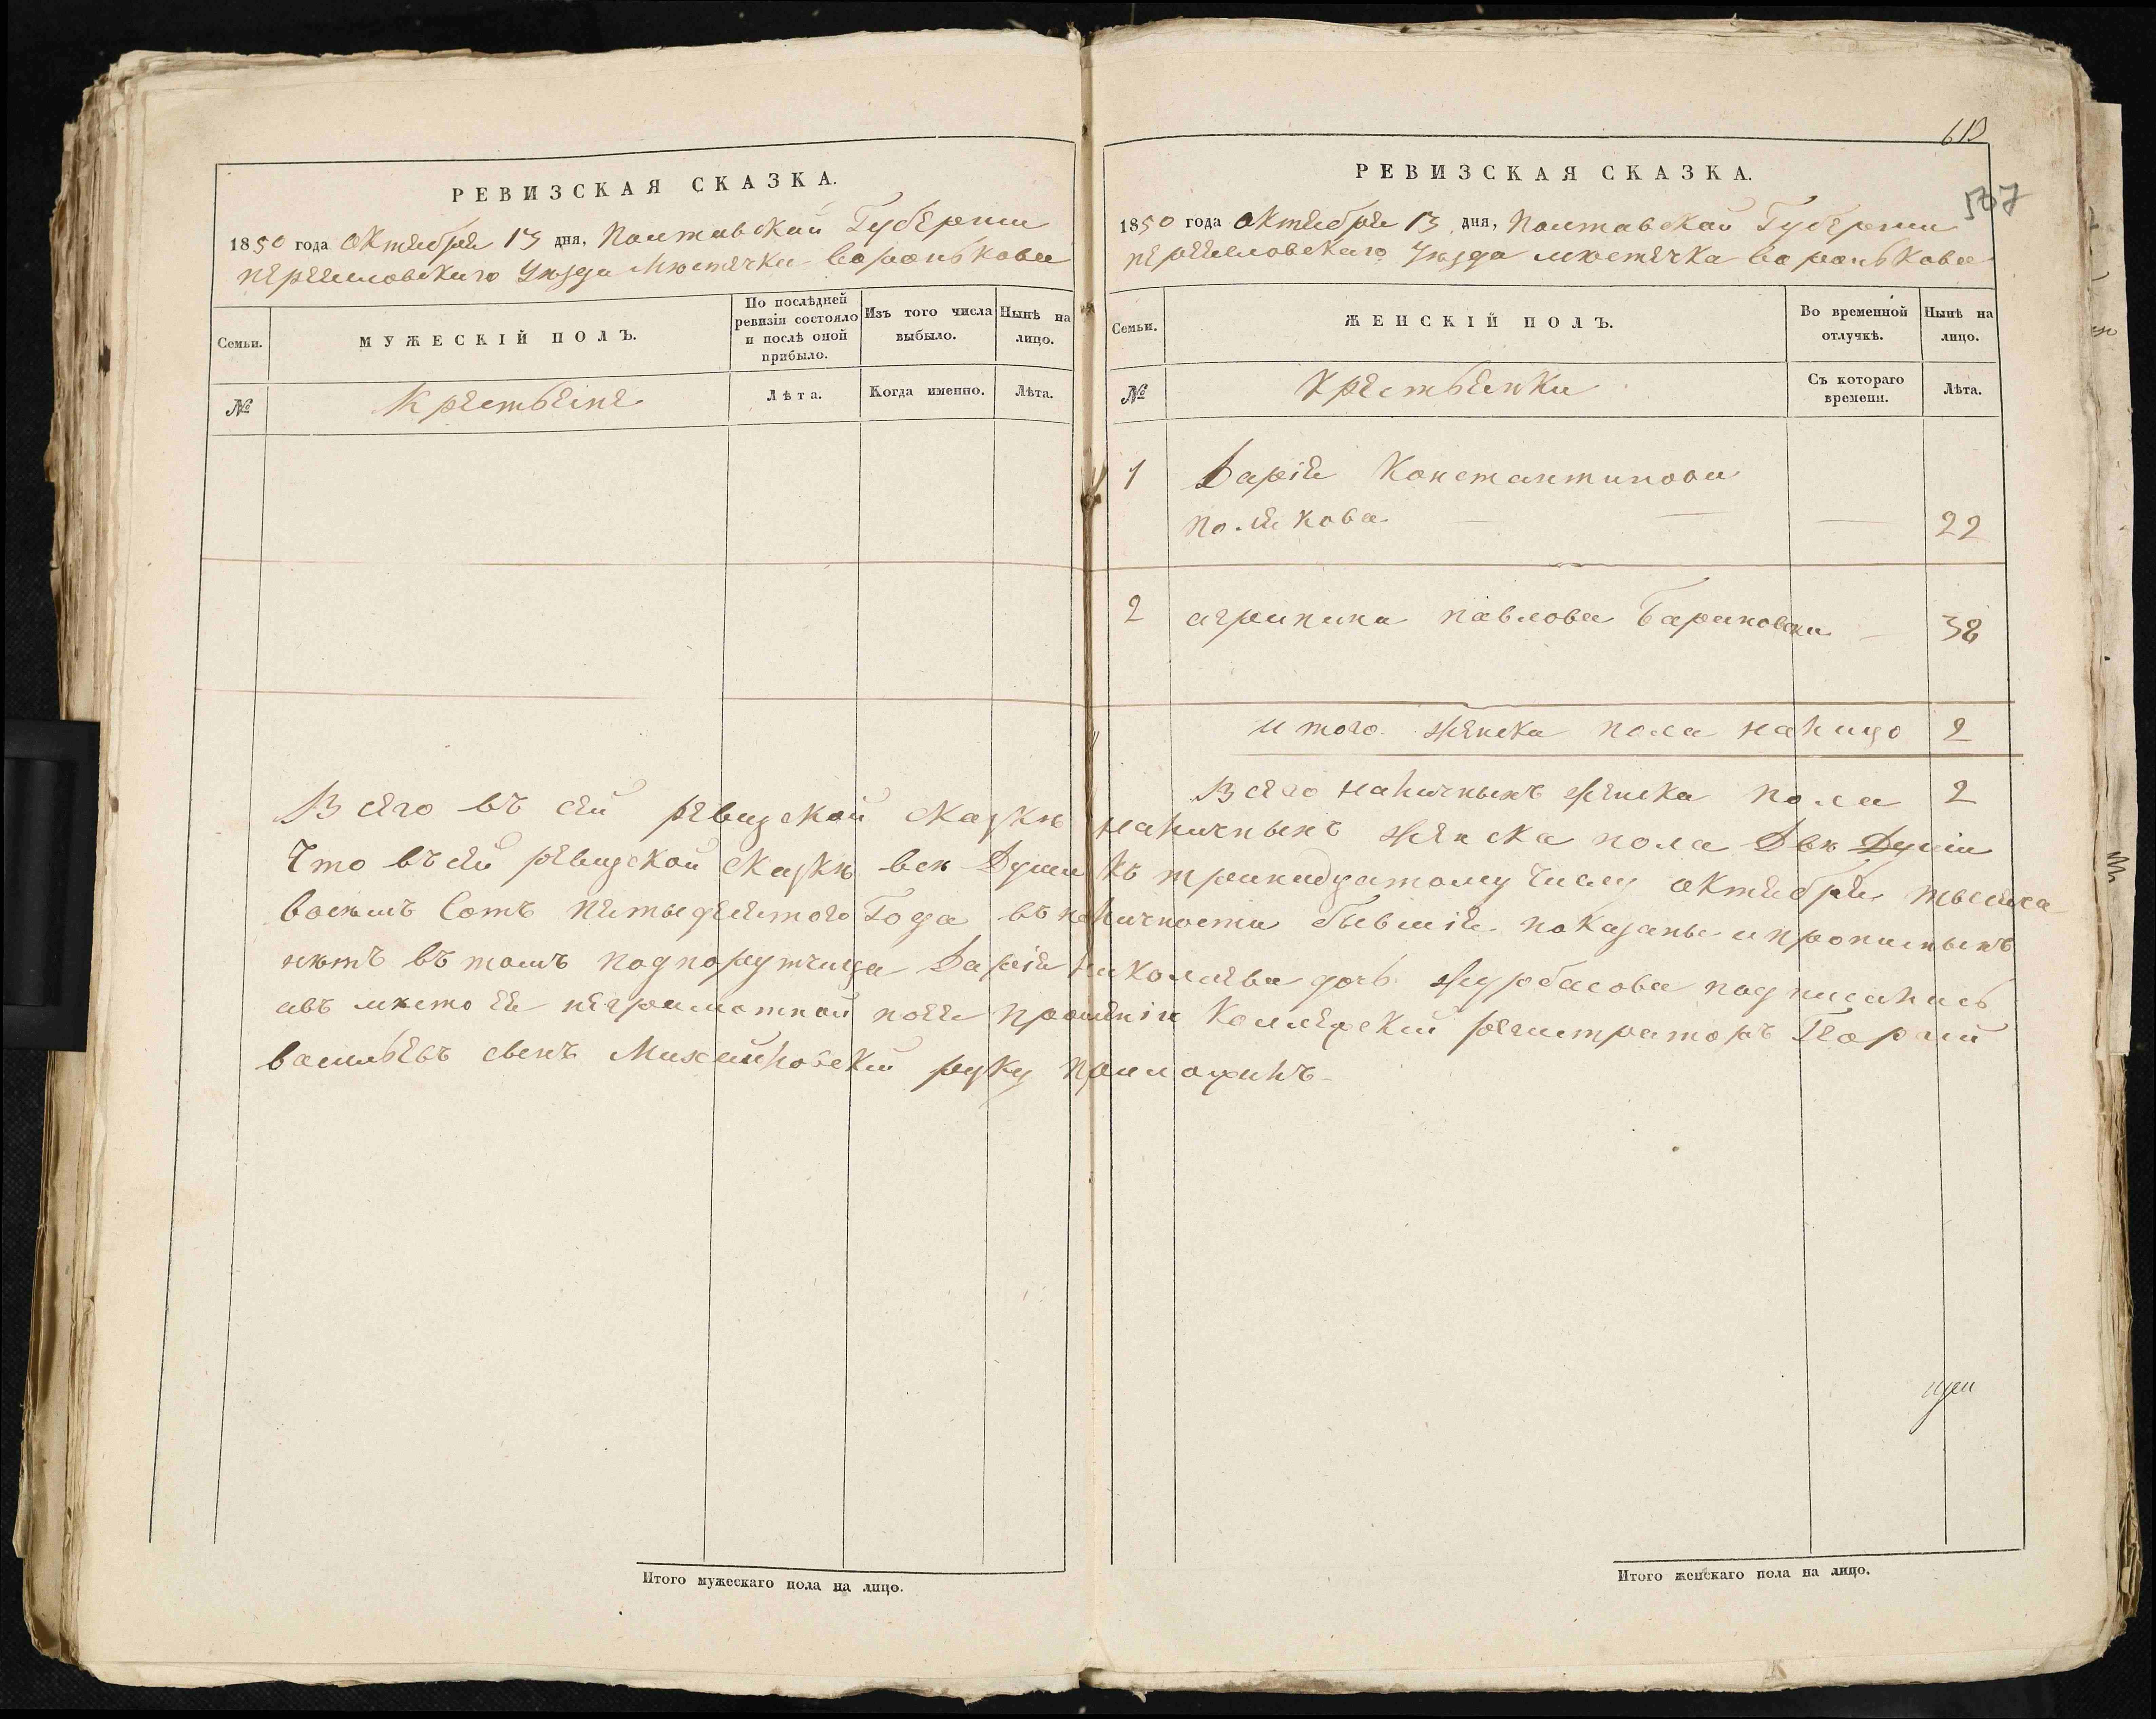 613
507
РЕВИЗСКАЯ СКАЗКА.
1850 года октября 13 дня, Полтавской Губернии
переяславского Уезда Местечка воронькова
Семьи.
МУЖЕСКІЙ ПОЛЪ.
По послѣдней ревизіи состояло и послѣ оной прибыло.
Изъ того числа выбыло.
Нынѣ на лицо.
№
Крестьяне
Лѣта.
Когда именно.
Лѣта.
РЕВИЗСКАЯ СКАЗКА.
1850 года октября 13 дня, Полтавской Губернии
переяславского Уезда местечка воронькова
Семьи.
ЖЕНСКІЙ ПОЛЪ.
Во временной отлучкѣ.
Нынѣ на лицо.
№
Крестьянки
Съ котораго времени.
Лѣта.
1 Дарія Константинова
полякова — — — 22
2 агрипина павлова Барановска — 38
итого женска пола налицо 2
Всего наличныхъ женска пола 2
Всего въ сей ревизской сказкѣ наличныхъ женска пола Двѣ Души
Что въ сей ревизской сказкѣ всѣ Души къ тринадцатому числу октября тысяча
восемь Сотъ пятьдесятого Года въ наличности бывшія показаны и прописныхъ
нѣтъ въ томъ подпоручица Дарія николаева дочь подписалась
а въ мѣсто ея неграмотной по ея прошенію Коллежский регистраторъ Георгий
васильевъ сынъ Михайловский руку приложилъ
Итого мужескаго пола на лицо.
Итого женскаго пола на лицо.